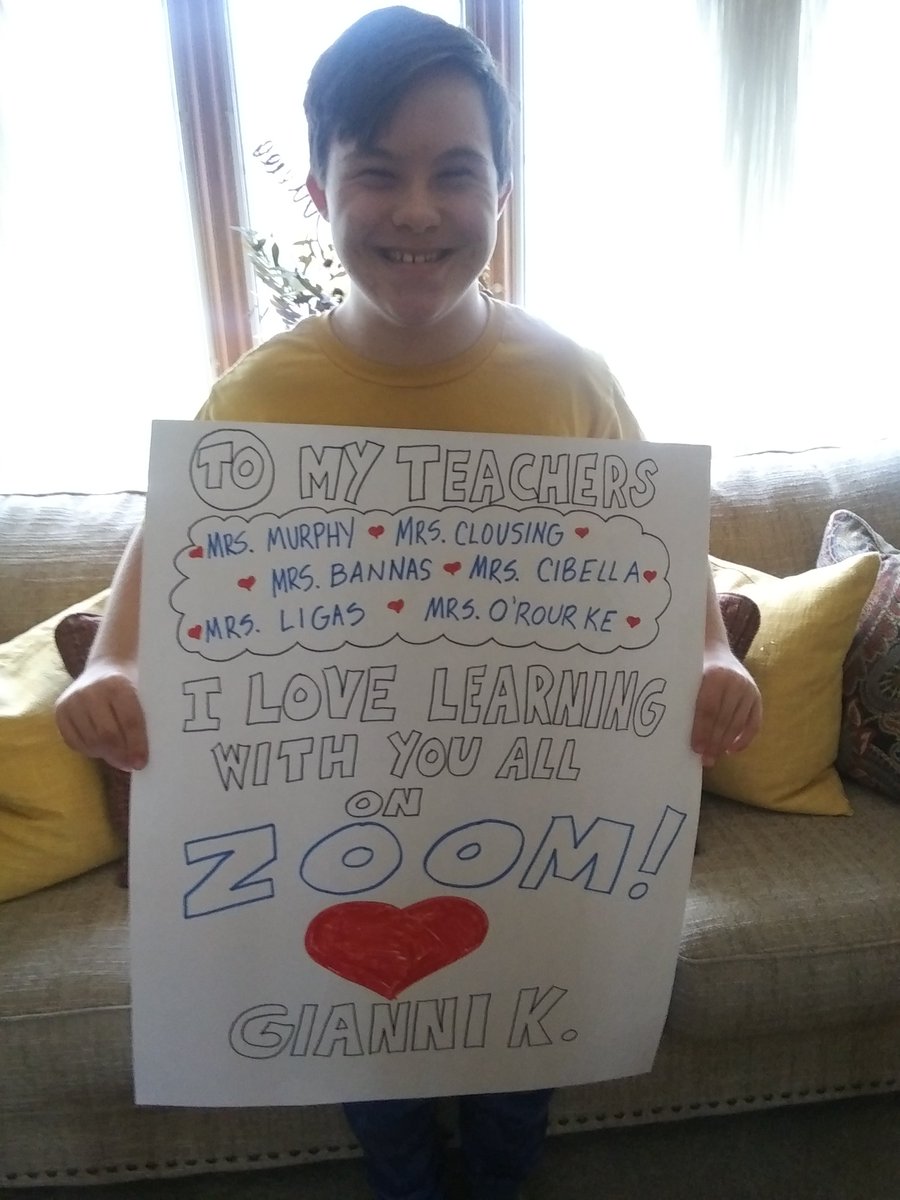 TO MY TEACHERS
MRS. MURPHY MRS. CLOUSING
MRS. BANNAS MRS. CIBELLA
MRS. LIGAS MRS. O'ROURKE
I LOVE LEARNING
WITH YOU ALL
ON
ZOOM!
GIANNI K.